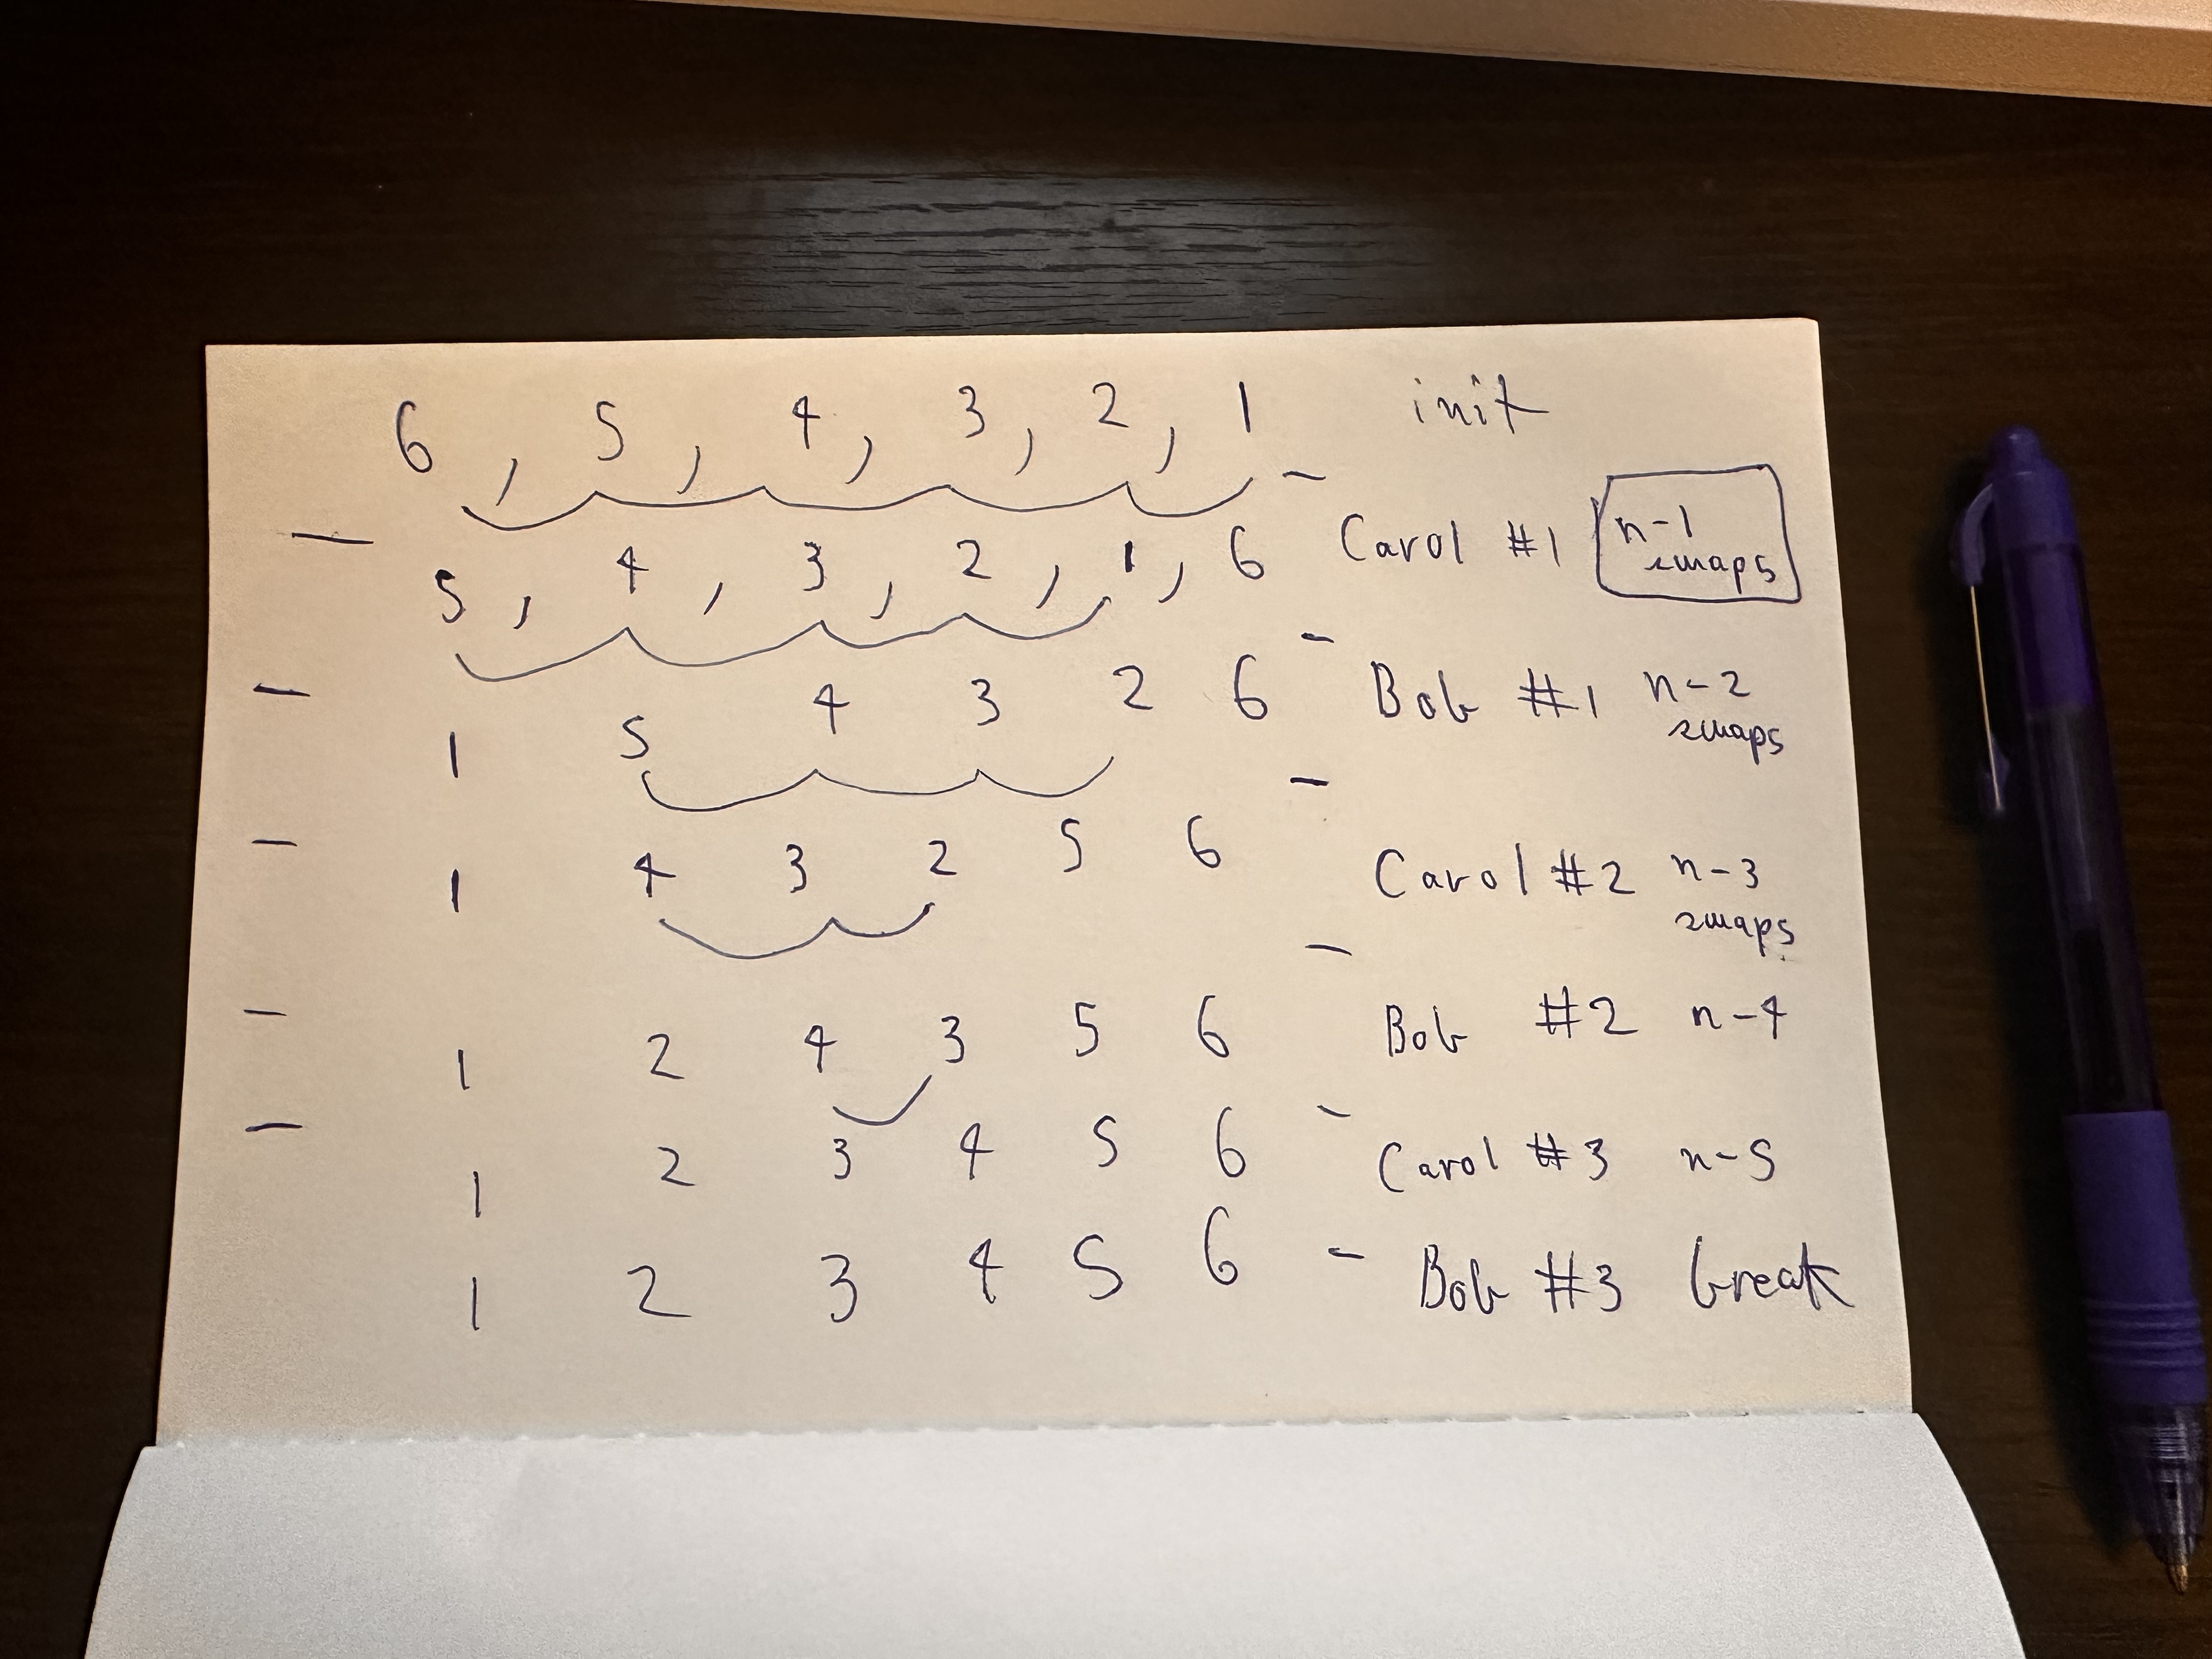 6, 5, 4, 3, 2, 1 init
5, 4, 3, 2, 1, 6 Carol #1 n-1 swaps
1 5 4 3 2 6 - Bob #1 n-2 swaps
1 4 3 2 5 6 - Carol #2 n-3 swaps
1 2 4 3 5 6 - Bob #2 n-4
1 2 3 4 5 6 - Carol #3 n-5
1 2 3 4 5 6 - Bob #3 break